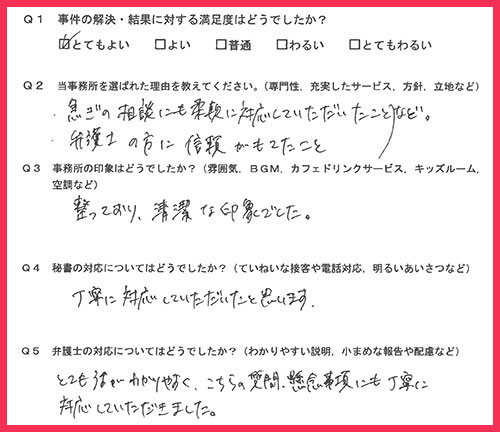 Q1 事件の解決・結果に対する満足度はどうでしたか？
☑とてもよい　□よい　□普通　□わるい　□とてもわるい
Q2 当事務所を選ばれた理由を教えてください。（専門性，充実したサービス，方針，立地など）
・急ぎの相談にも柔軟に対応していただいたことなど。
・弁護士の方に信頼がもてたこと
Q3 事務所の印象はどうでしたか？（雰囲気，ＢＧＭ，カフェドリンクサービス，キッズルーム，
空調など）
整っており、清潔な印象でした。
Q4 秘書の対応についてはどうでしたか？（ていねいな接客や電話対応，明るいあいさつなど）
丁寧に対応していただいたと思います。
Q5 弁護士の対応についてはどうでしたか？（わかりやすい説明，小まめな報告や配慮など）
とても わかりやすく、こちらの質問、懸念事項にも丁寧に
対応していただきました。